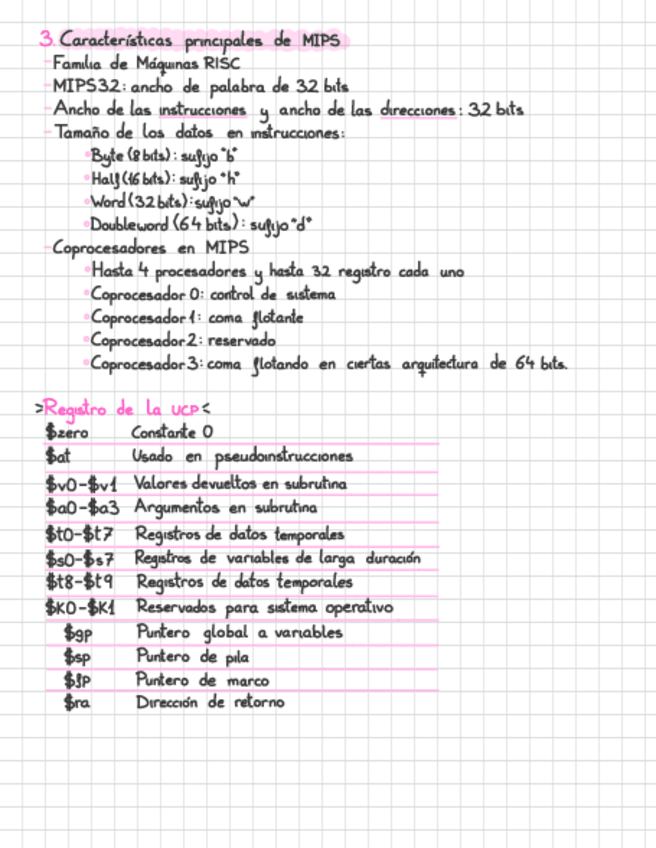 3. Características principales de MIPS
- Familia de Máquinas RISC
- MIPS32: ancho de palabra de 32 bits
- Ancho de las instrucciones y ancho de las direcciones: 32 bits
- Tamaño de los datos en instrucciones:
• Byte (8 bits): sufijo "b"
• Half (16 bits): sufijo "h"
• Word (32 bits): sufijo "w"
• Doubleword (64 bits): sufijo "d"
- Coprocesadores en MIPS
• Hasta 4 procesadores y hasta 32 registro cada uno
• Coprocesador 0: control de sistema
• Coprocesador 1: coma flotante
• Coprocesador 2: reservado
• Coprocesador 3: coma flotando en ciertas arquitectura de 64 bits.
>Registro de la UCP<
$zero Constante 0
$at Usado en pseudoinstrucciones
$v0-$v1 Valores devueltos en subrutina
$a0-$a3 Argumentos en subrutina
$t0-$t7 Registros de datos temporales
$s0-$s7 Registros de variables de larga duración
$t8-$t9 Registros de datos temporales
$K0-$K1 Reservados para sistema operativo
$gp Puntero global a variables
$sp Puntero de pila
$fp Puntero de marco
$ra Dirección de retorno